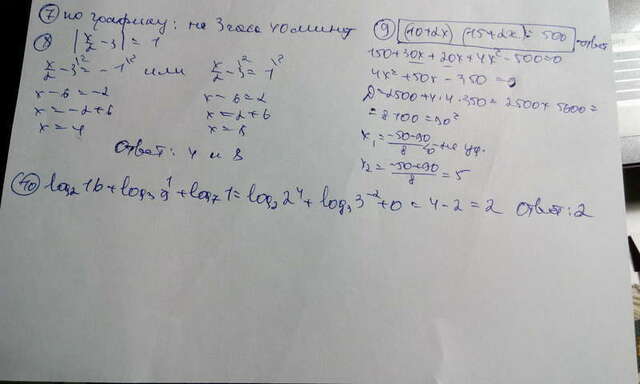 ⑦ по графику: на 3 часа 40 минут
⑧ |x/2 - 3| = 1
x/2 - 3 = -1 или x/2 - 3 = 1
x - 6 = -2 x - 6 = 2
x = -2 + 6 x = 2 + 6
x = 4 x = 8
Ответ: 4 и 8
⑨ (10+2x) (15+2x) = 500 - ответ
150 + 30x + 20x + 4x² - 500 = 0
4x² + 50x - 350 = 0
D = 2500 + 4·4·350 = 2500 + 5600 =
= 8100 = 90²
x₁ = (-50-90)/8 - не уд.
x₂ = (-50+90)/8 = 5
⑩ log₂16 + log₃ 1/9 + log₇ 1 = log₂2⁴ + log₃3⁻² + 0 = 4 - 2 = 2 Ответ: 2